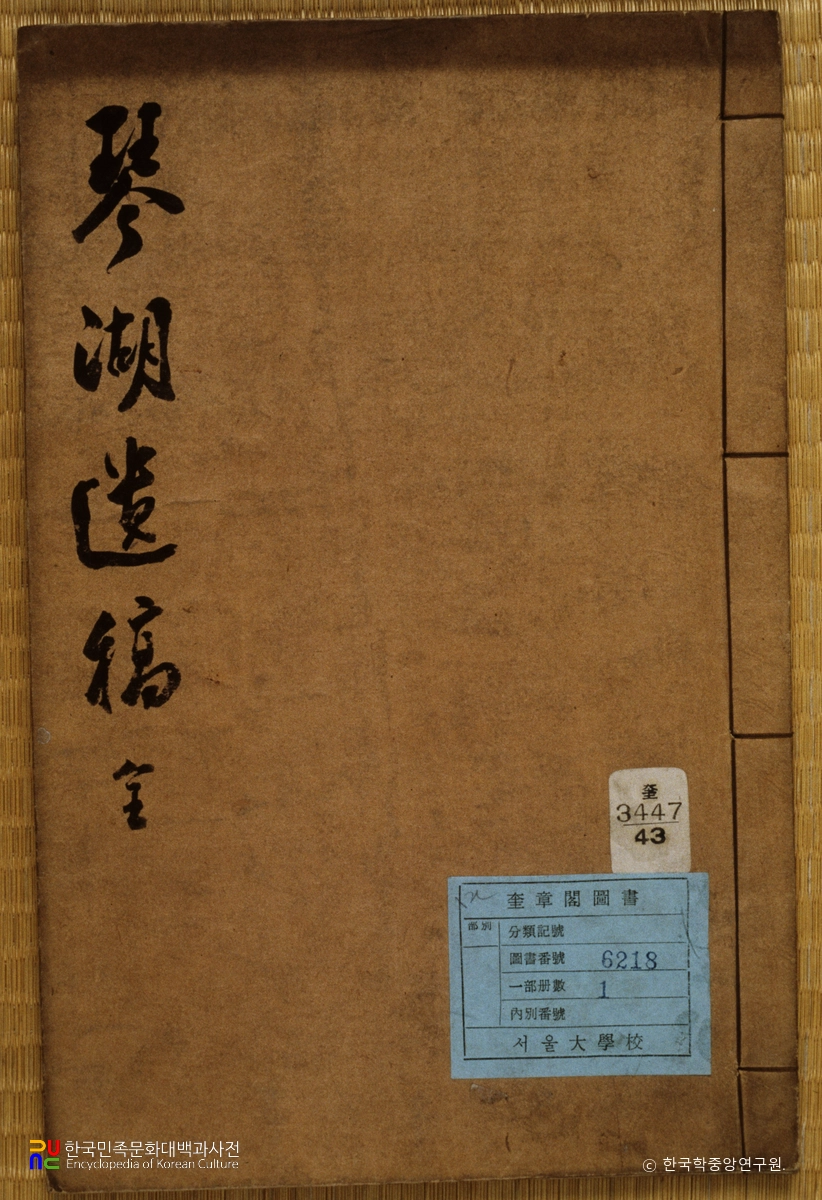 琴湖遺稿 全
奎
3447
43
奎章閣圖書
部別
分類記號
圖書番號 6218
一部册數 1
內別番號
서울大學校
한국민족문화대백과사전
Encyclopedia of Korean Culture
© 한국학중앙연구원.